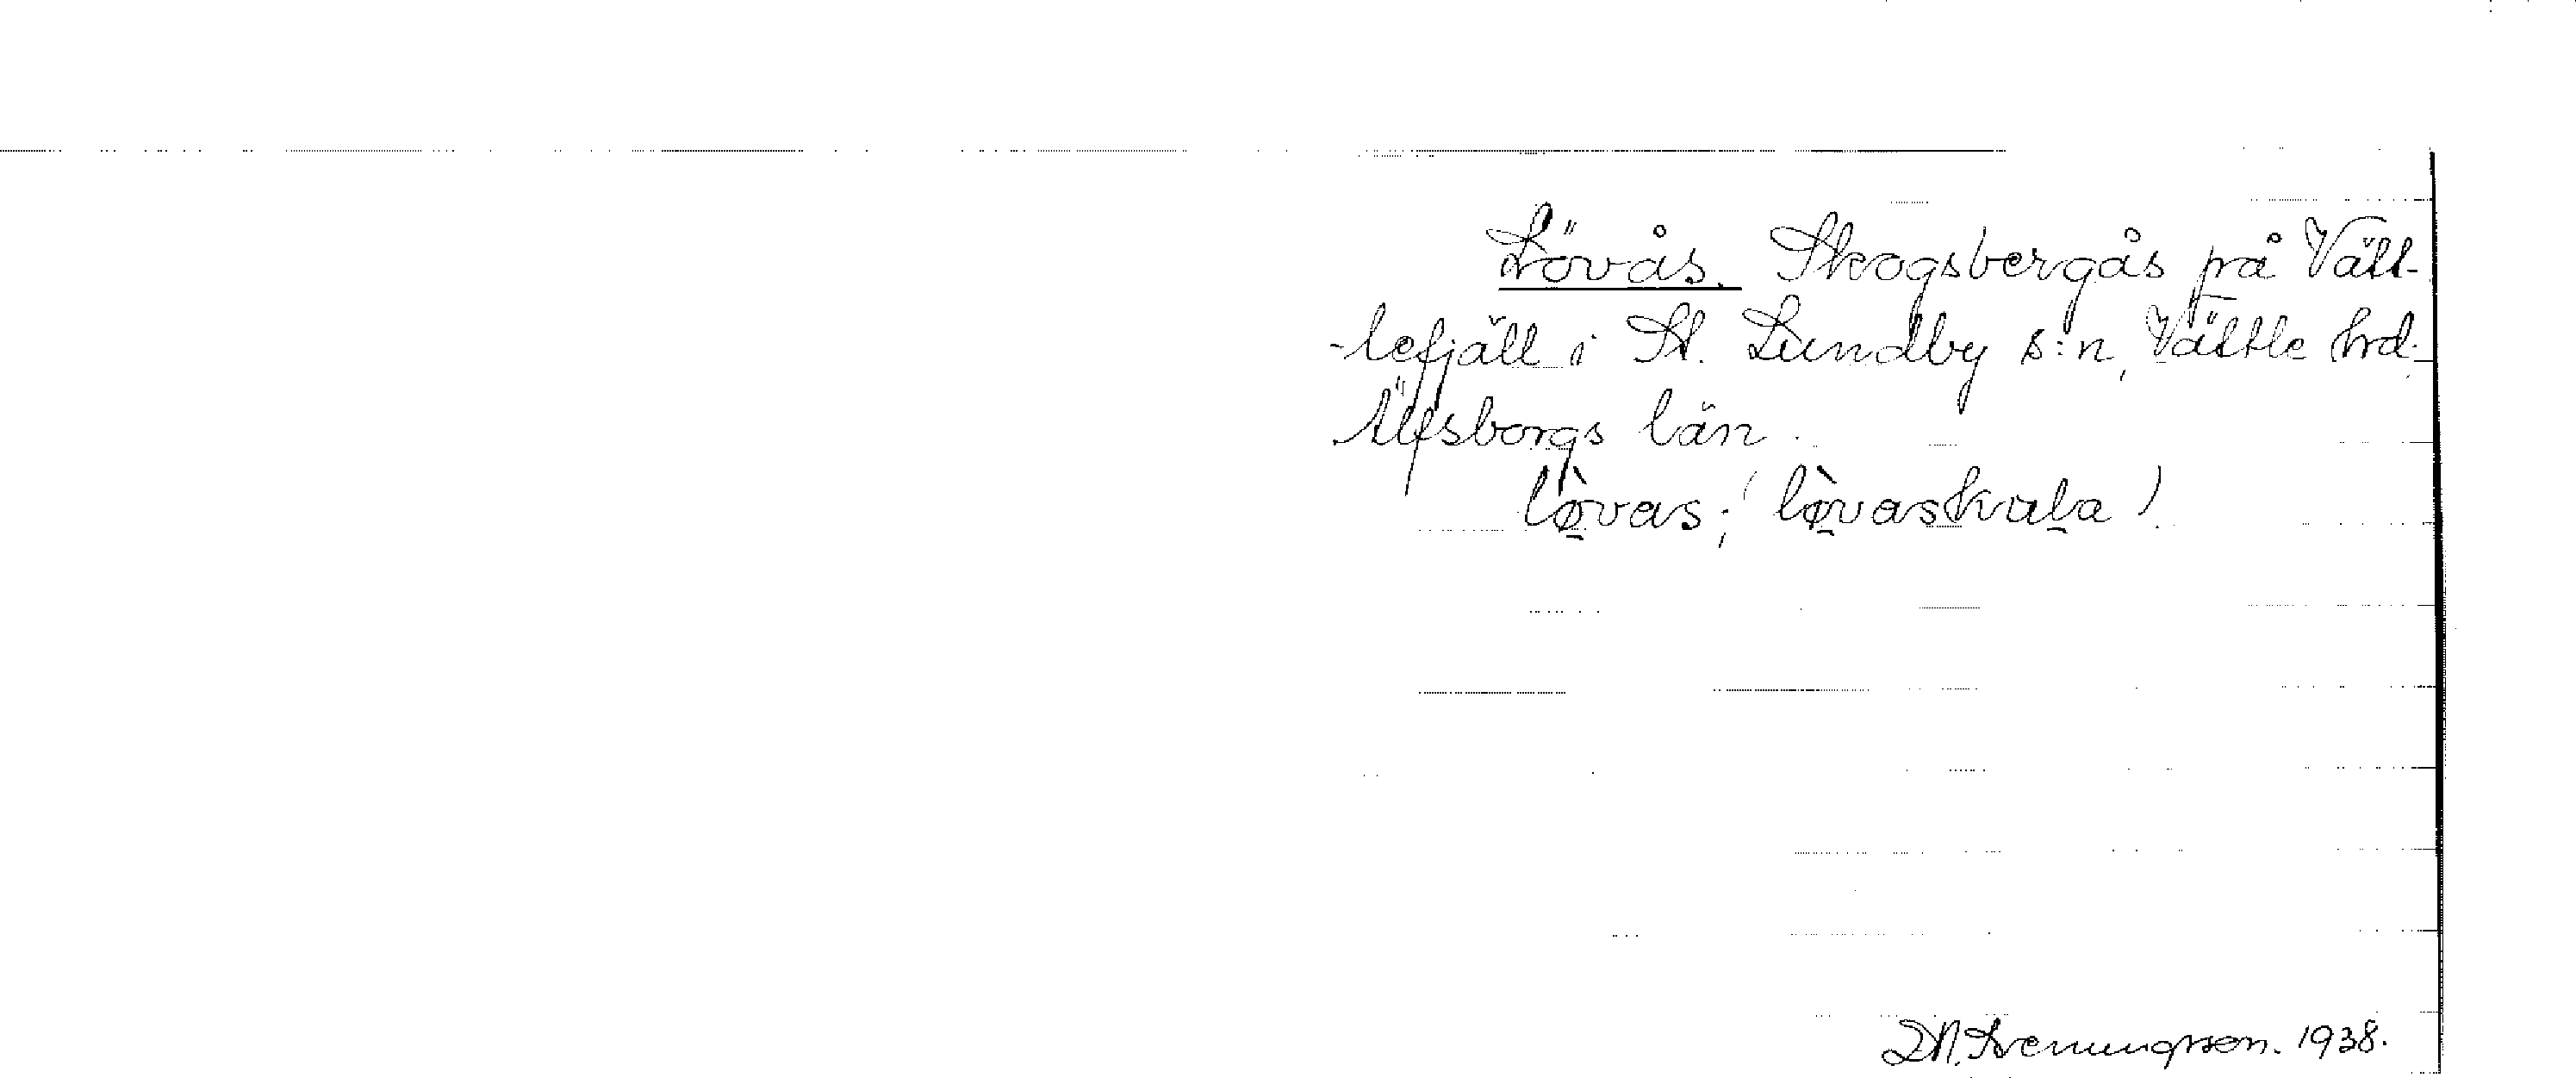 Lövås. Skogsbergås på Vätt-
-lefjäll i St. Lundby s:n, Vättle hrd.
Älfsborgs län.
lø̀vas; (lø̀vaskula)
1938.